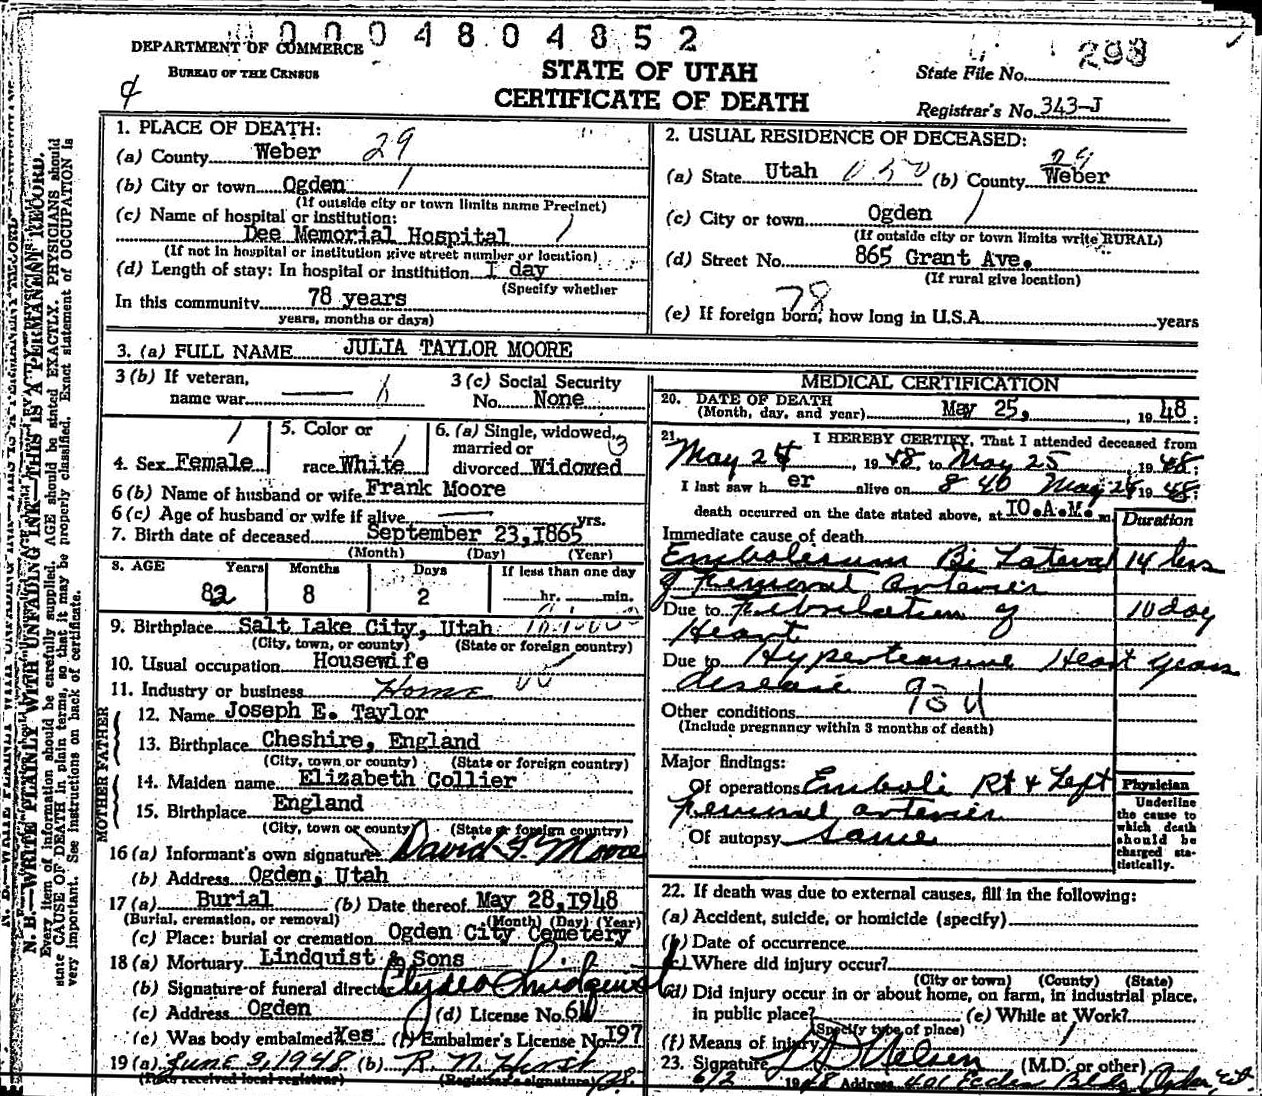 0004804852
DEPARTMENT OF COMMERCE
BUREAU OF THE CENSUS
STATE OF UTAH
CERTIFICATE OF DEATH
State File No. 298
Registrar's No. 343-J
1. PLACE OF DEATH:
(a) County Weber 29
(b) City or town Ogden
(If outside city or town limits name Precinct)
(c) Name of hospital or institution:
Dee Memorial Hospital
(If not in hospital or institution give street number or location)
(d) Length of stay: In hospital or institution 1 day
(Specify whether
In this community 78 years
years, months or days)
2. USUAL RESIDENCE OF DECEASED:
29
(a) State Utah (b) County Weber
(c) City or town Ogden
(If outside city or town limits write RURAL)
(d) Street No. 865 Grant Ave.
(If rural give location)
78
(e) If foreign born, how long in U.S.A. years
3. (a) FULL NAME JULIA TAYLOR MOORE
3 (b) If veteran,
name war
3 (c) Social Security
No. None
4. Sex Female
5. Color or
race White
6. (a) Single, widowed, 3
married or
divorced Widowed
6 (b) Name of husband or wife Frank Moore
6 (c) Age of husband or wife if alive yrs.
7. Birth date of deceased September 23, 1865
(Month) (Day) (Year)
8. AGE Years Months Days If less than one day
82 8 2 hr. min.
9. Birthplace Salt Lake City, Utah
(City, town, or county) (State or foreign country)
10. Usual occupation Housewife
11. Industry or business Home
FATHER
12. Name Joseph E. Taylor
13. Birthplace Cheshire, England
(City, town or county) (State or foreign country)
MOTHER
14. Maiden name Elizabeth Collier
15. Birthplace England
(City, town or county) (State or foreign country)
16 (a) Informant's own signature David F. Moore
(b) Address Ogden, Utah
17 (a) Burial (b) Date thereof May 28, 1948
(Burial, cremation, or removal) (Month) (Day) (Year)
(c) Place: burial or cremation Ogden City Cemetery
18 (a) Mortuary Lindquist & Sons
(b) Signature of funeral director Lindquist
(c) Address Ogden (d) License No. 61
(e) Was body embalmed Yes (f) Embalmer's License No. 197
19 (a) June 3, 1948 (b) R. N. Hirst
(Date received local registrar) (Registrar's signature)
MEDICAL CERTIFICATION
20. DATE OF DEATH
(Month, day, and year) May 25, , 1948:
21. I HEREBY CERTIFY, That I attended deceased from
May 24, 1948, to May 25, 1948:
I last saw h er alive on 8 40 May 24 1948:
death occurred on the date stated above, at 10.A.M. m.
Duration
Immediate cause of death
Embolisum Bi Lateral 14 hrs
of Femoral arteries
Due to Fibrilation of 10 day
Heart
Due to Hypertensive Heart years
disease 93d
Other conditions
(Include pregnancy within 3 months of death)
Major findings:
Of operations Emboli Rt & Left
Femoral arteries
Of autopsy Same
Physician
Underline
the cause to
which death
should be
charged sta-
tistically.
22. If death was due to external causes, fill in the following:
(a) Accident, suicide, or homicide (specify)
(b) Date of occurrence
(c) Where did injury occur?
(City or town) (County) (State)
(d) Did injury occur in or about home, on farm, in industrial place,
in public place? (e) While at Work?
(Specify type of place)
(f) Means of injury
23. Signature Nelsen (M.D. or other)
6/2 1948 Address 401 Eccles Bldg Ogden, Ut.
N. B.—WRITE PLAINLY WITH UNFADING INK—THIS IS A PERMANENT RECORD.
Every item of information should be carefully supplied. AGE should be stated EXACTLY. PHYSICIANS should
state CAUSE OF DEATH in plain terms, so that it may be properly classified. Exact statement of OCCUPATION is
very important. See instructions on back of certificate.